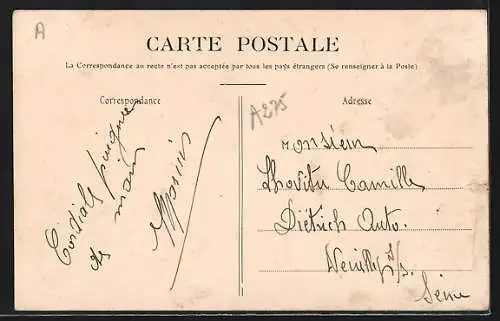 A
CARTE POSTALE
La Correspondance au recto n'est pas acceptée par tous les pays étrangers (Se renseigner à la Poste)
Correspondance
Cordiale poignée
de main
A275
Adresse
Monsieur
Camille
Diétrich Auto.
Neuilly s/s.
Seine